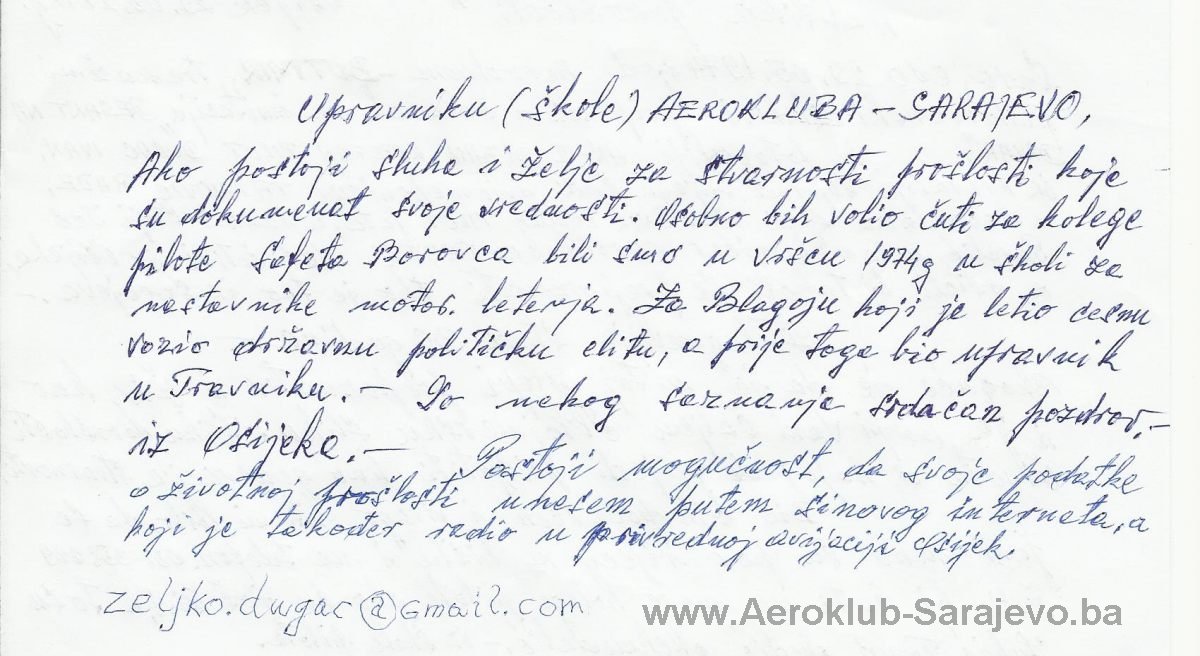 Upravniku (škole) AEROKLUBA – SARAJEVO,
Ako postoji sluha i želje za stvarnosti prošlosti koje
su dokumenat svoje vrednosti. Osobno bih volio čuti za kolege
pilote Safeta Borovca bili smo u Vršcu 1974g u školi za
nastavnike motor. letenja. Za Blagoju koji je letio cesnu
vozio državnu političku elitu, a prije toga bio upravnik
u Travniku. – Do nekog saznanja srdačan pozdrav. –
iz Osijeka. – Postoji mogučnost, da svoje podatke
o životnoj prošlosti unesem putem sinovog interneta, a
koji je također radio u privrednoj avijaciji Osijek.
zeljko.dugac@gmail.com
www.Aeroklub-Sarajevo.ba